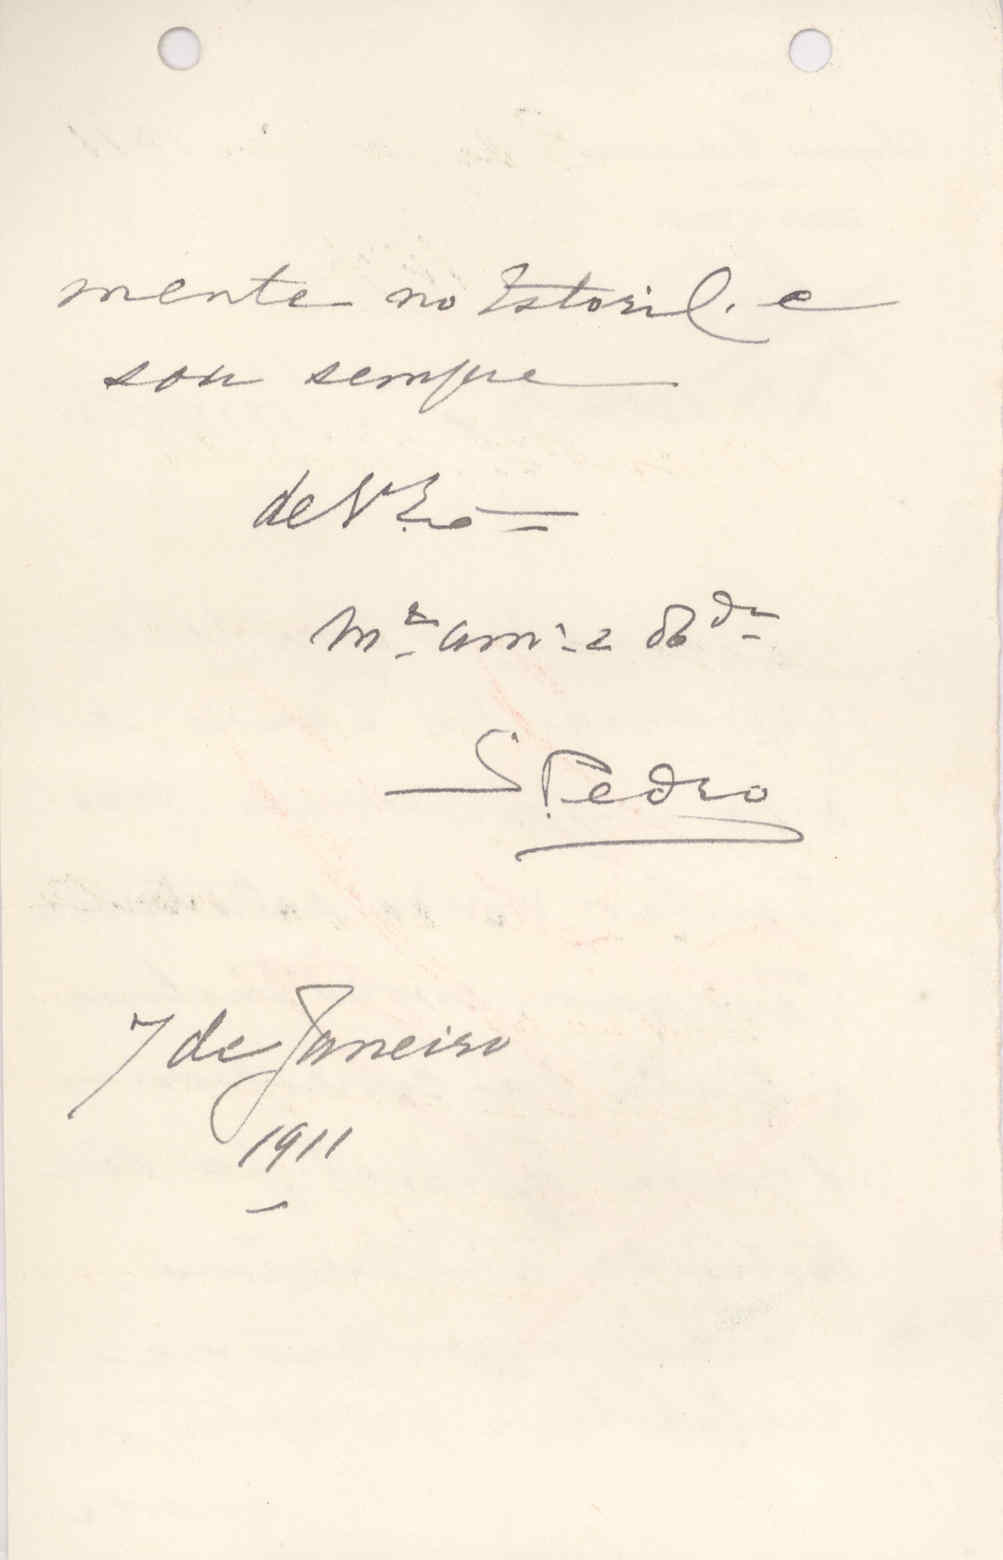 mente no Estoril. e
sou sempre
de V. Ex.ª
m.to am.º e ob.do
S. Pedro
7 de Janeiro
1911